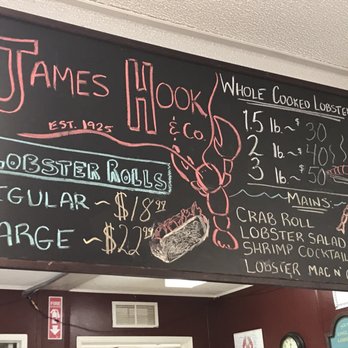 JAMES HOOK
& CO
EST. 1925
LOBSTER ROLLS
EGULAR ~ $18.00
ARGE ~ $22.99
WHOLE COOKED LOBSTER
1.5 lb. ~ $30
2 lb. ~ $40
3 lb. ~ $50
MAINS:
CRAB ROLL
LOBSTER SALAD
SHRIMP COCKTAIL
LOBSTER MAC N'